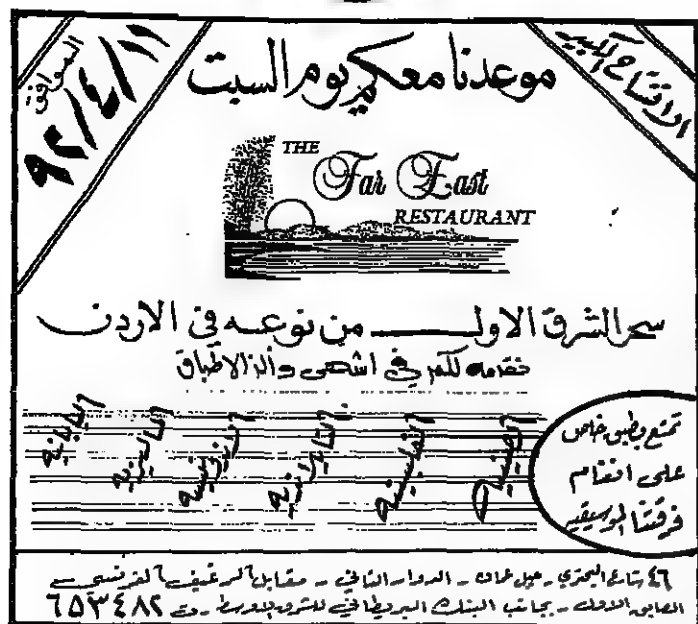 الافتتاح الكبير
موعدنا معكم يوم السبت
الموافق
٩٢/٤/١١
THE
Far East
RESTAURANT
سحر الشرق الاول من نوعه في الاردن
نقدمه لكم في اشهى والذ الاطباق
الصينية
الفلبينية
التايلاندية
الاندونيسية
الماليزية
اليابانية
تمتع بطبق خاص
على انغام
فرقتنا الموسيقية
٤٦ شارع البحتري - جبل عمان - الدوار الثاني - مقابل الرغيف الفرنسي
الطابق الاول - بجانب البنك البريطاني للشرق الاوسط - ت ٦٥٣٤٨٢